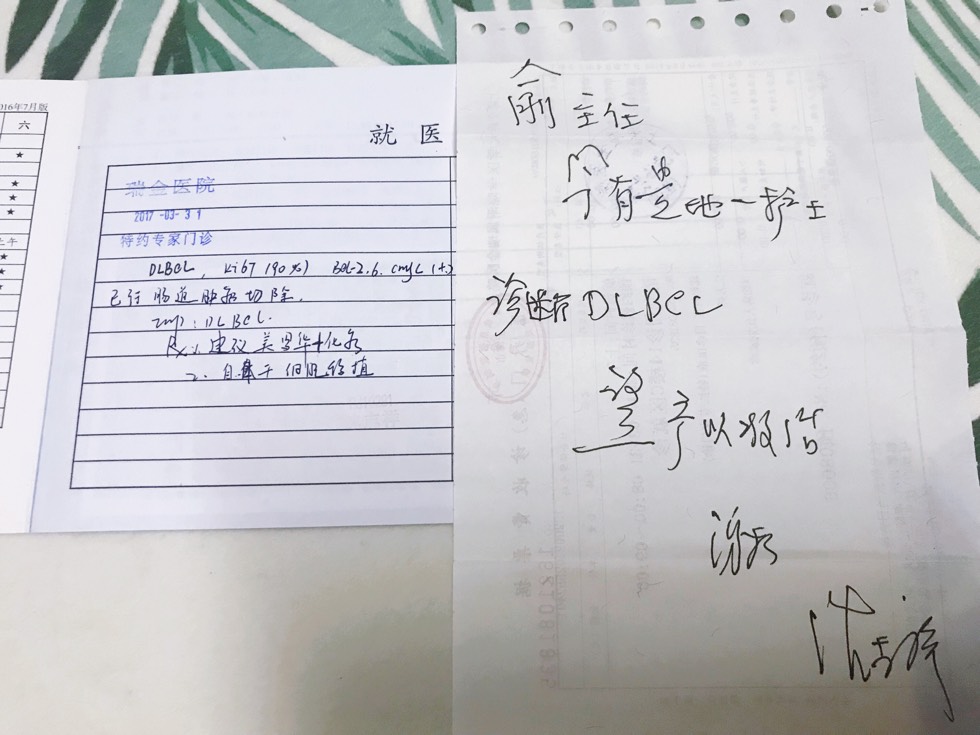 016年7月版
六
★
★
★
★
上午
★
★
★
就 医
瑞金医院
2017-03-31
特约专家门诊
DLBCL, Ki67 (90%) Bcl-2.6. cmyc (+)
已行肠道肿瘤切除.
imp: DLBCL.
Rx: 建议美罗华+化疗
2. 自体干细胞移植
俞主任
今有贵地一护士
诊断 DLBCL
望予以
谢谢
沈志祥